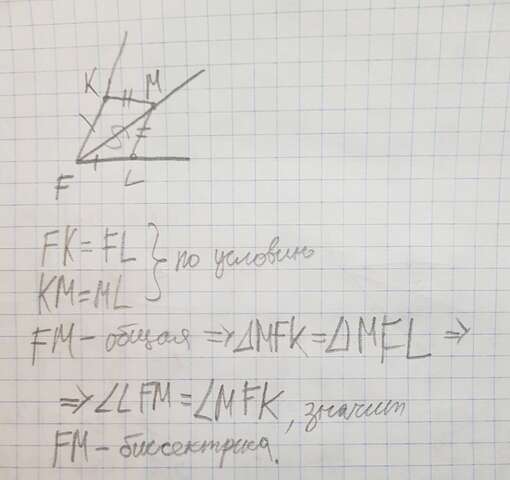 K
M
F
L
FK = FL } по условию
KM = ML
FM - общая ⇒ △MFK = △MFL ⇒
⇒ ∠LFM = ∠MFK, значит
FM - биссектриса.